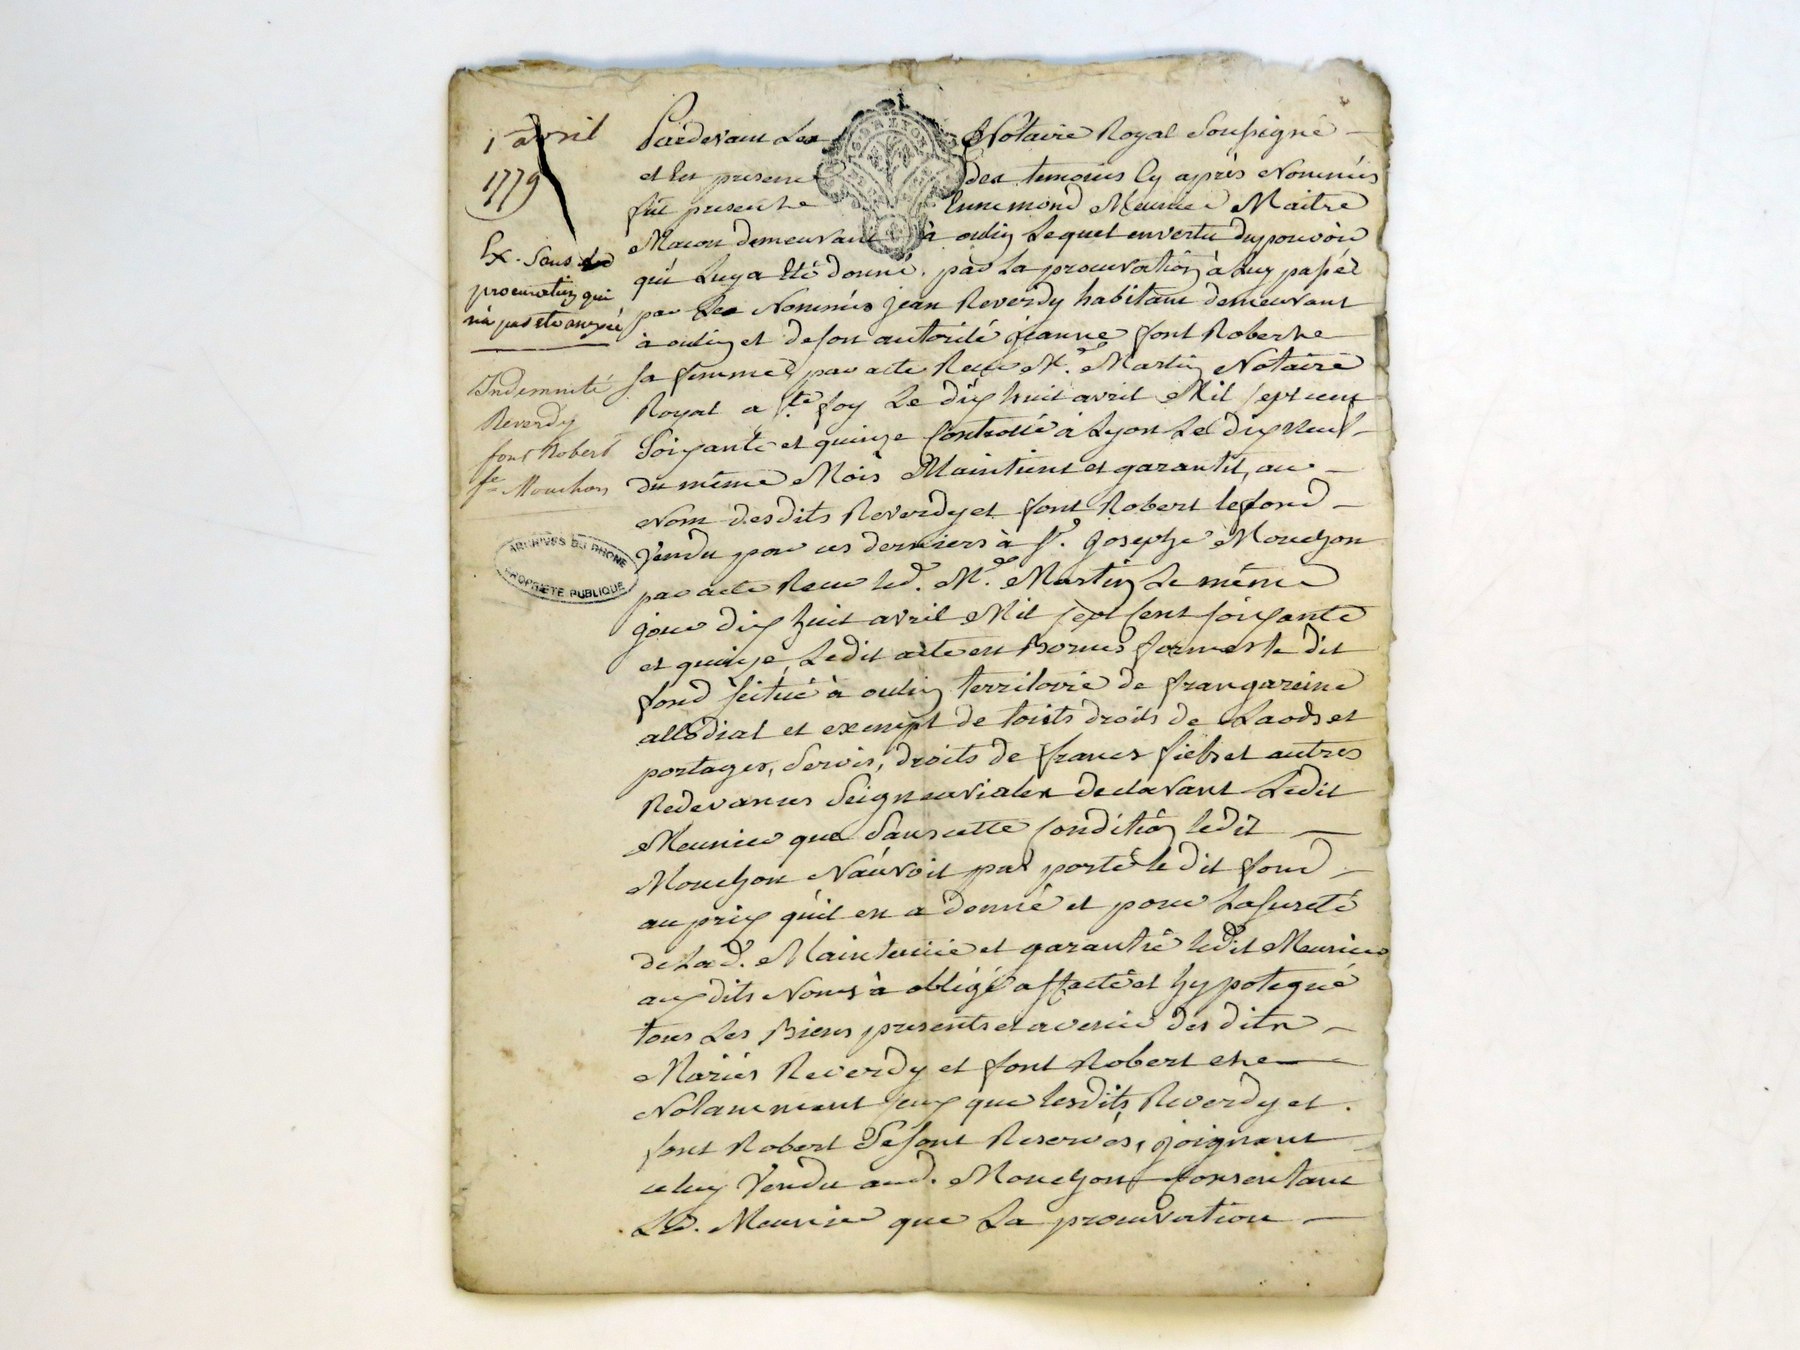 1 avril
1779
Ex. Sans la
procuration qui
n'a pas été annexé
Indemnité
Reverdy
font Robert
fe Mouchon
ARCHIVES DU RHONE
PROPRIÉTÉ PUBLIQUE
GEN. LYON
Pardevant Les Notaire Royal Soussigné
et En presence des temoins Cy après Nommés
fut presente Ennemond Meunier Maitre
Macon demeurant à oulin Lequel en vertu du pouvoir
qui Luy a Eté donné par La procuration à Luy passée
par Les Nommés jean Reverdy habitant demeurant
à oulin et de son autorité jeanne font Roberte
sa femme par acte Reçu Me. Martin Notaire
Royal a Ste foy Le dix huit avril Mil sept cent
Soixante et quinze Controllé à Lyon Le dix Neuf
du même Mois Maintient et garantit, au
Nom desdits Reverdy et font Robert le fond
Vendu par ces derniers à Sr. Joseph Mouchon
par acte Reçu led. Me. Martin Le même
jour dix huit avril Mil sept Cent soixante
et quinze Ledit acte en Bonnes formes le dit
fond scitué à oulin territoire de frangareine
allodial et exempt de touts droits de Laods et
portages, Servis, droits de francs fiefs et autres
Redevances Seigneurialex declarant Ledit
Meunier que Sans cette Condition ledit
Mouchon N'auroit pas porté le dit fond
au prix qu'il en a donné et pour La sureté
de Lad. Maintenüe et garantie ledit Meunier
auxdits Noms à obligé affecté et hypotequé
tous Les Biens presents et avenir des dits
Mariés Reverdy et font Robert et
Notamment ceux que lesdits Reverdy et
font Robert Se sont Reservés, joignant
celuy Vendu aud. Mouchon Consentant
Led. Meunier que La procuration